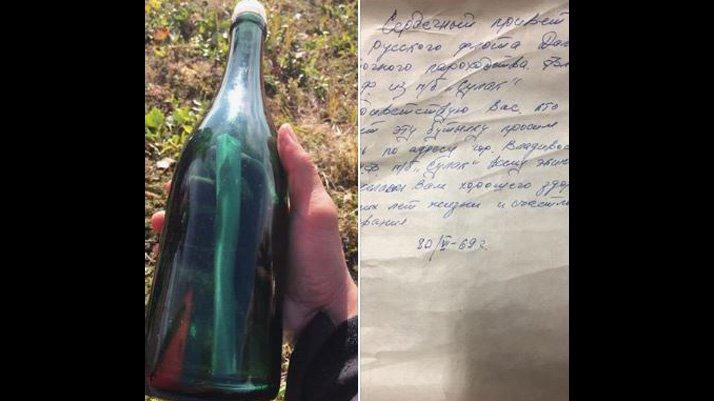 Сердечный привет
Русского флота Дал
очного пароходства Вл
из п/б "Сулак"
ветствую Вас, кто
ет эту бутылку просим
ь по адресу гор. Владивос
п/б "Сулак" всему экип
Вам хорошего здор
их лет жизни и счастли
вания
20/VI-69 г.